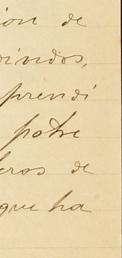 ion de
dindos,
prendi
potre
heros de
que ha